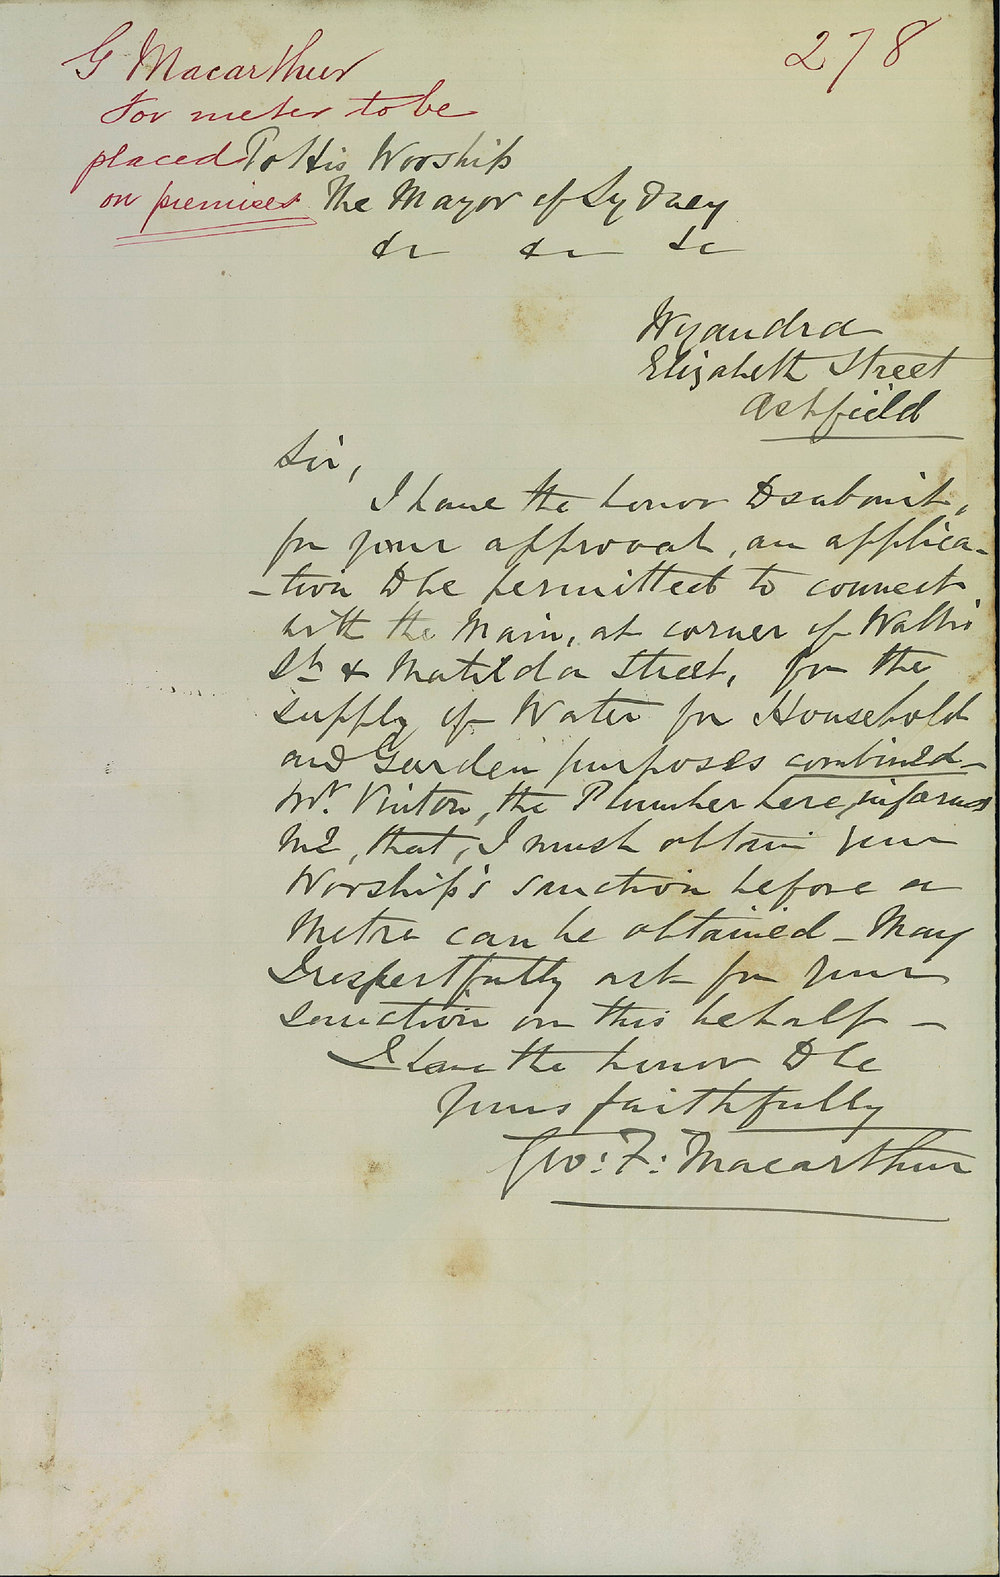 278
G Macarthur
For meter to be
placed
on premises
To His Worship
The Mayor of Sydney
&c &c &c
Wyandra
Elizabeth Street
Ashfield
Sir,
I have the honor to submit,
for your approval, an applica-
-tion to be permitted to connect
with the Main, at corner of
St & Matilda Street, for the
supply of Water for Household
and Garden purposes combined -
Mr. Vinton, the Plumber here, informs
me, that, I must obtain your
Worship's sanction before a
Metre can be obtained - May
I respectfully ask for your
sanction on this behalf -
I have the honor to be
Yours faithfully
Geo: F: Macarthur